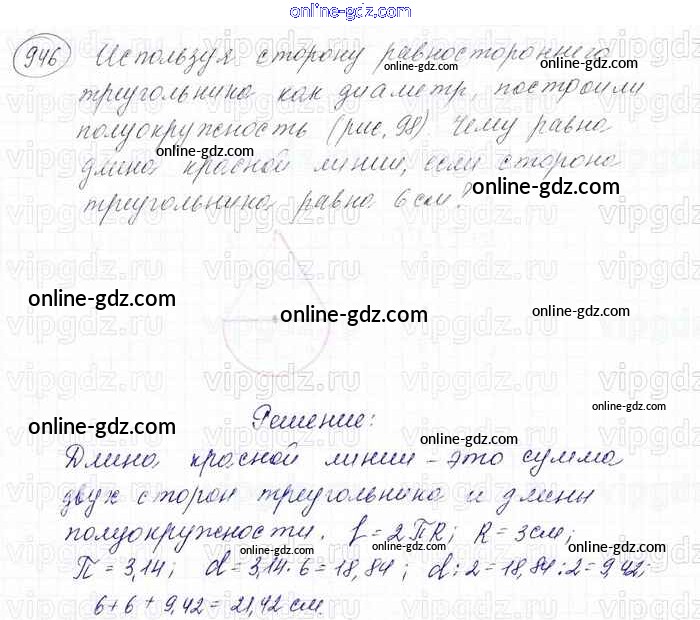 online-gdz.com
946 Используя сторону равностороннего
треугольника как диаметр, построили
полуокружность (рис. 98). Чему равна
длина красной линии, если сторона
треугольника равна 6 см?
online-gdz.com
online-gdz.com
online-gdz.com
online-gdz.com
online-gdz.com
online-gdz.com
online-gdz.com
Решение:
online-gdz.com
online-gdz.com
online-gdz.com
Длина красной линии – это сумма
двух сторон треугольника и длины
полуокружности. l = 2ПR; R = 3 см;
П = 3,14; d = 3,14 · 6 = 18,84; d : 2 = 18,84 : 2 = 9,42;
6 + 6 + 9,42 = 21,42 см.
online-gdz.com
online-gdz.com
online-gdz.com
vipgdz.ru